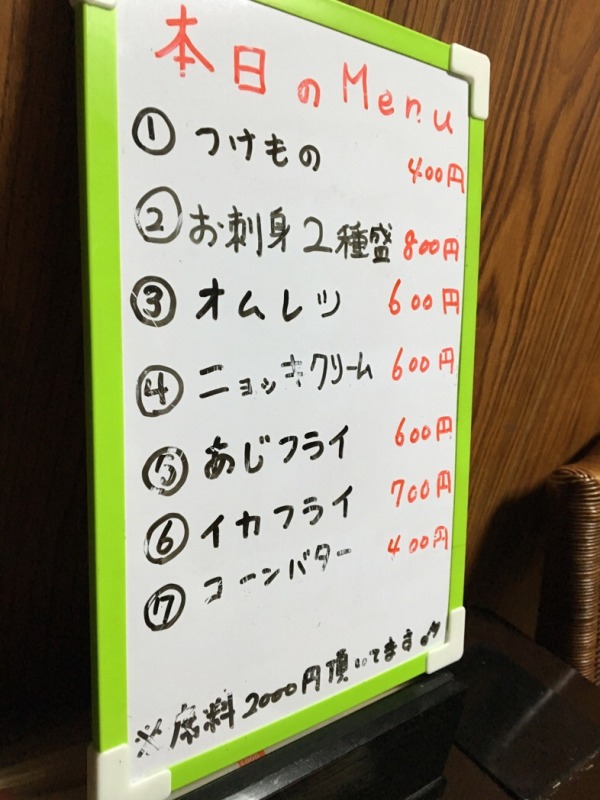 本日のMenu
① つけもの 400円
② お刺身2種盛 800円
③ オムレツ 600円
④ ニョッキクリーム 600円
⑤ あじフライ 600円
⑥ イカフライ 700円
⑦ コーンバター 400円
※席料2000円頂いてます♪